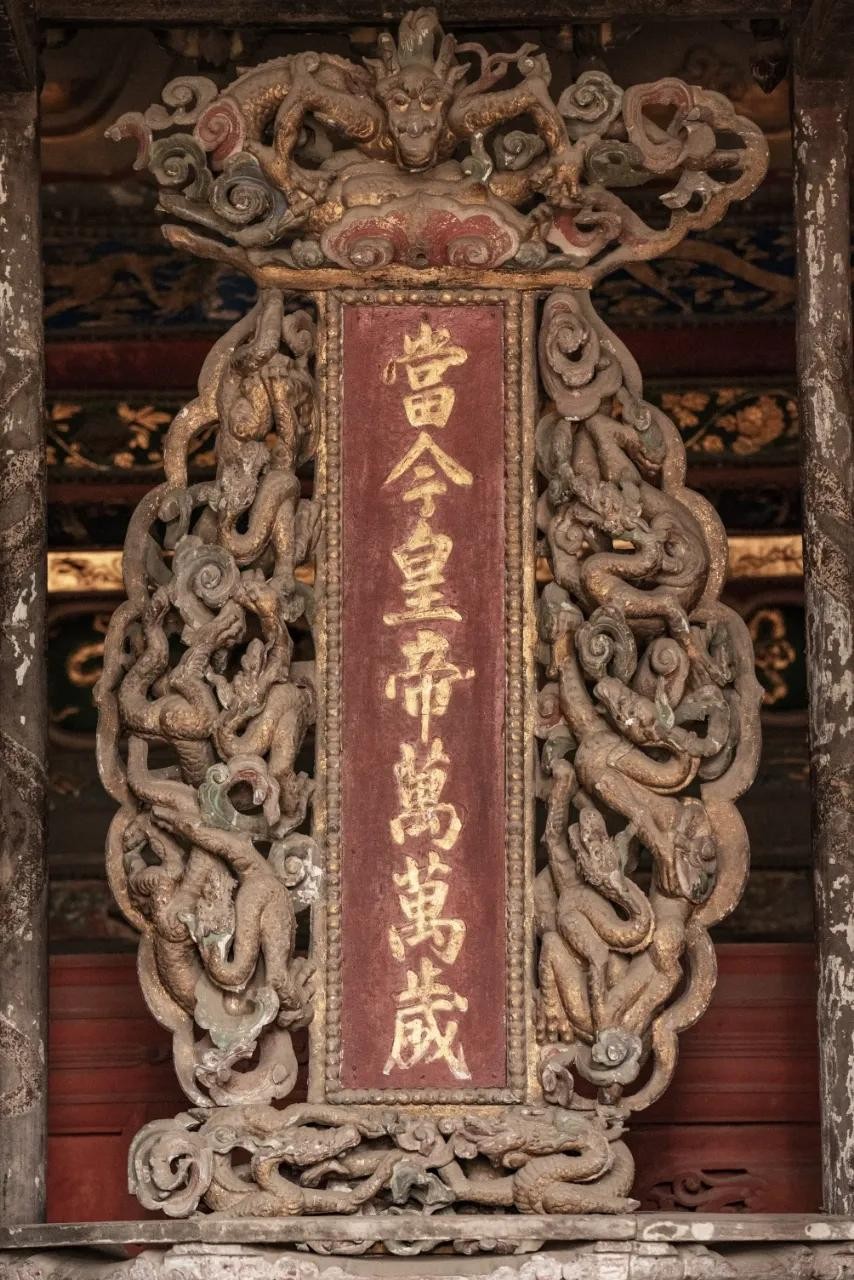 當今皇帝萬萬歲